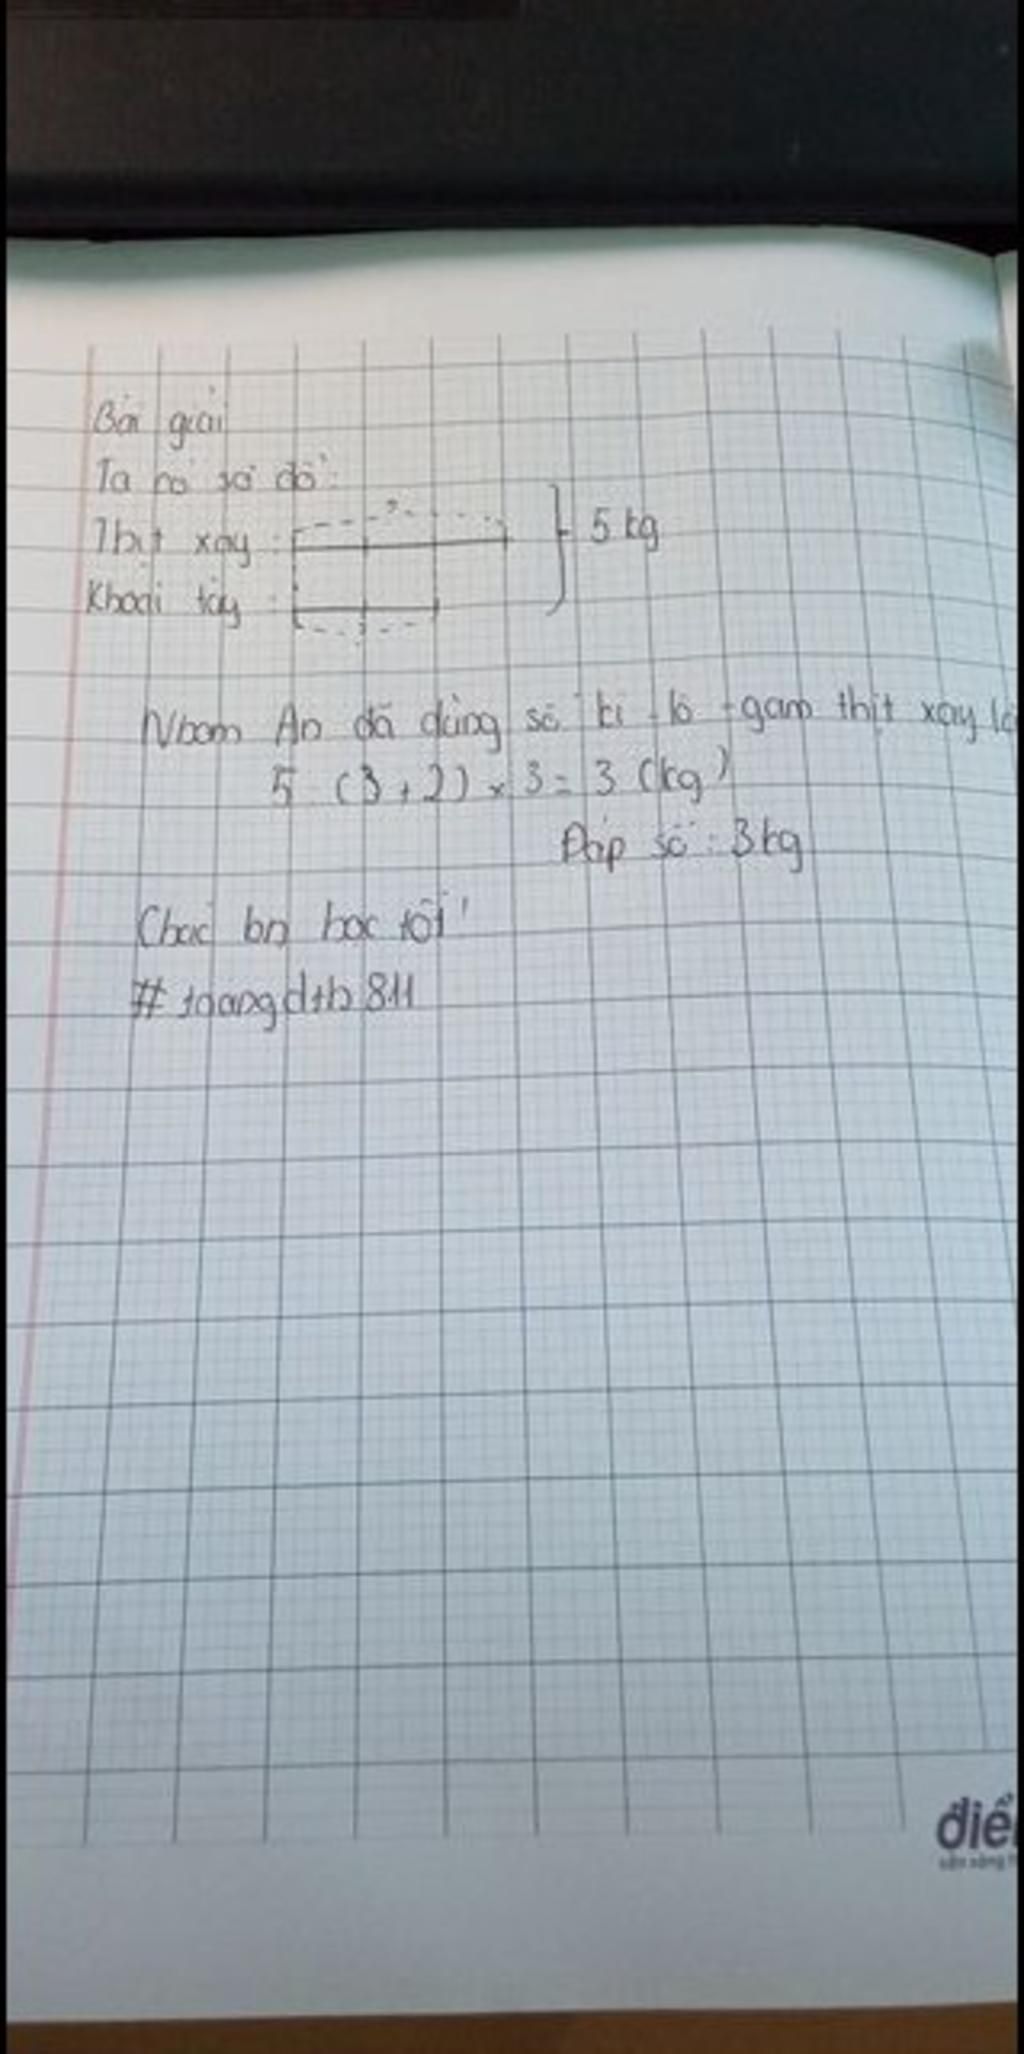 Bài giải
Ta có sơ đồ:
?
Thịt xay :
5 kg
Khoai tây :
?
Nhóm An đã dùng số ki-lô-gam thịt xay là
5 : (3 + 2) × 3 = 3 (kg)
Đáp số : 3kg
Chúc bn học tốt!
điể